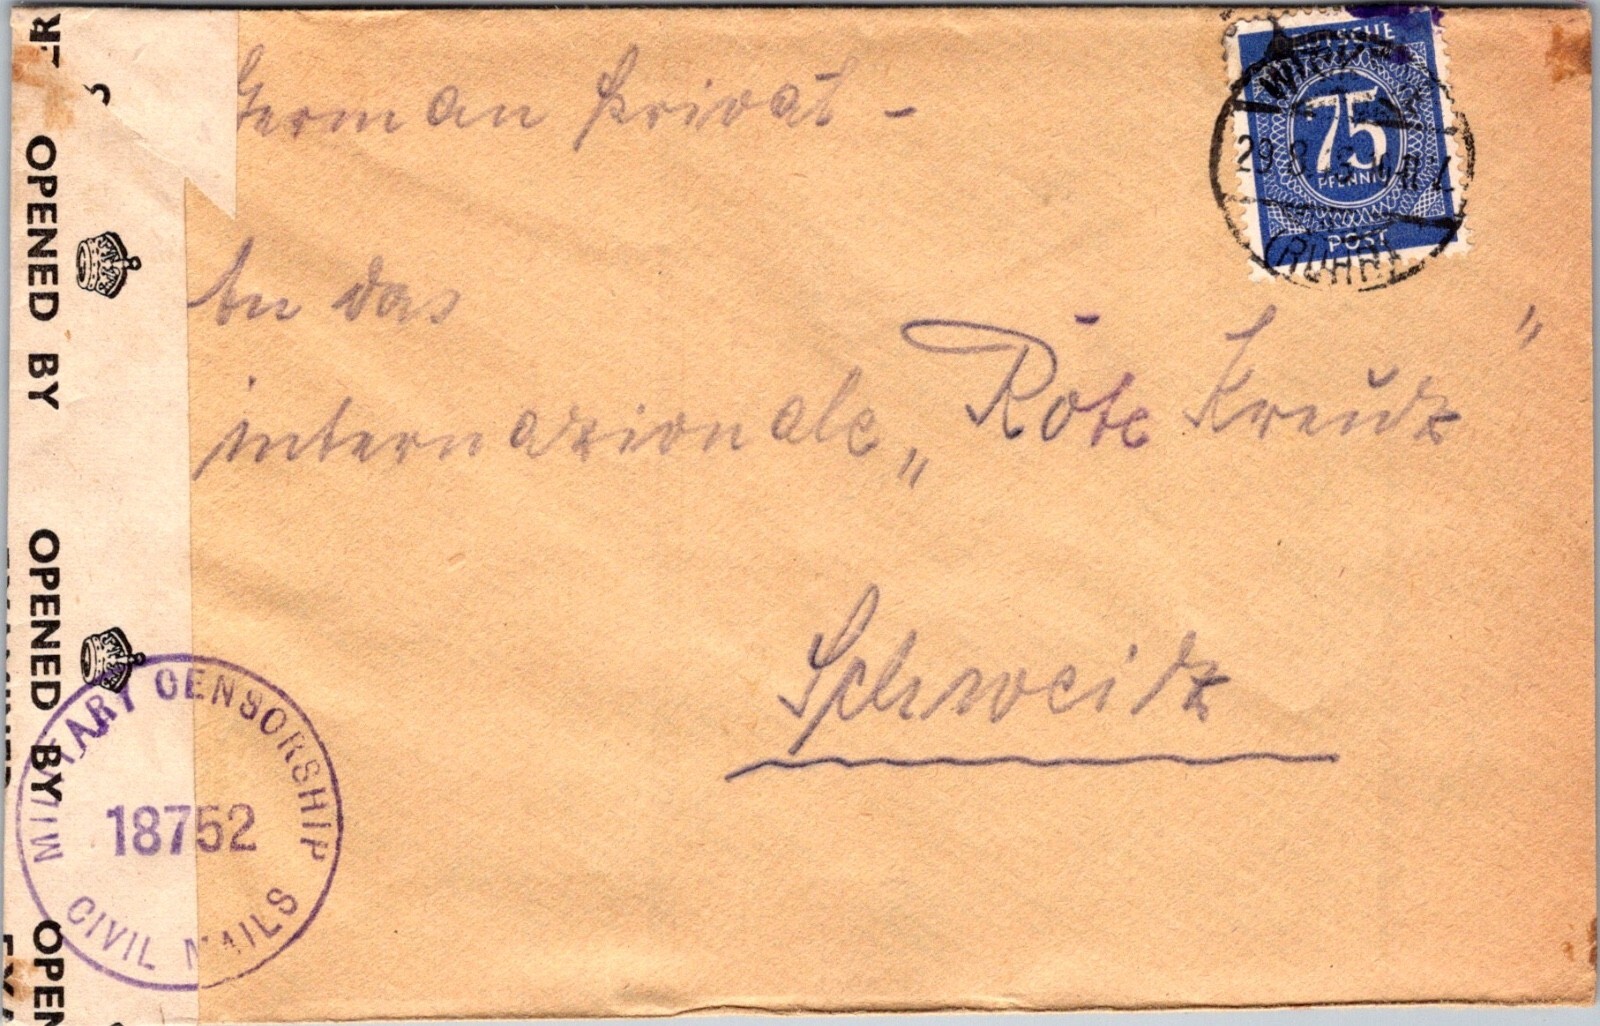 German Privat -
An das
internazionale „Rote Kreudz"
Schweidz
DEUTSCHE
75
PFENNIG
POST
29.8
(RUHR)
OPENED BY
OPENED BY
OPEN
MILITARY CENSORSHIP
18752
CIVIL MAILS